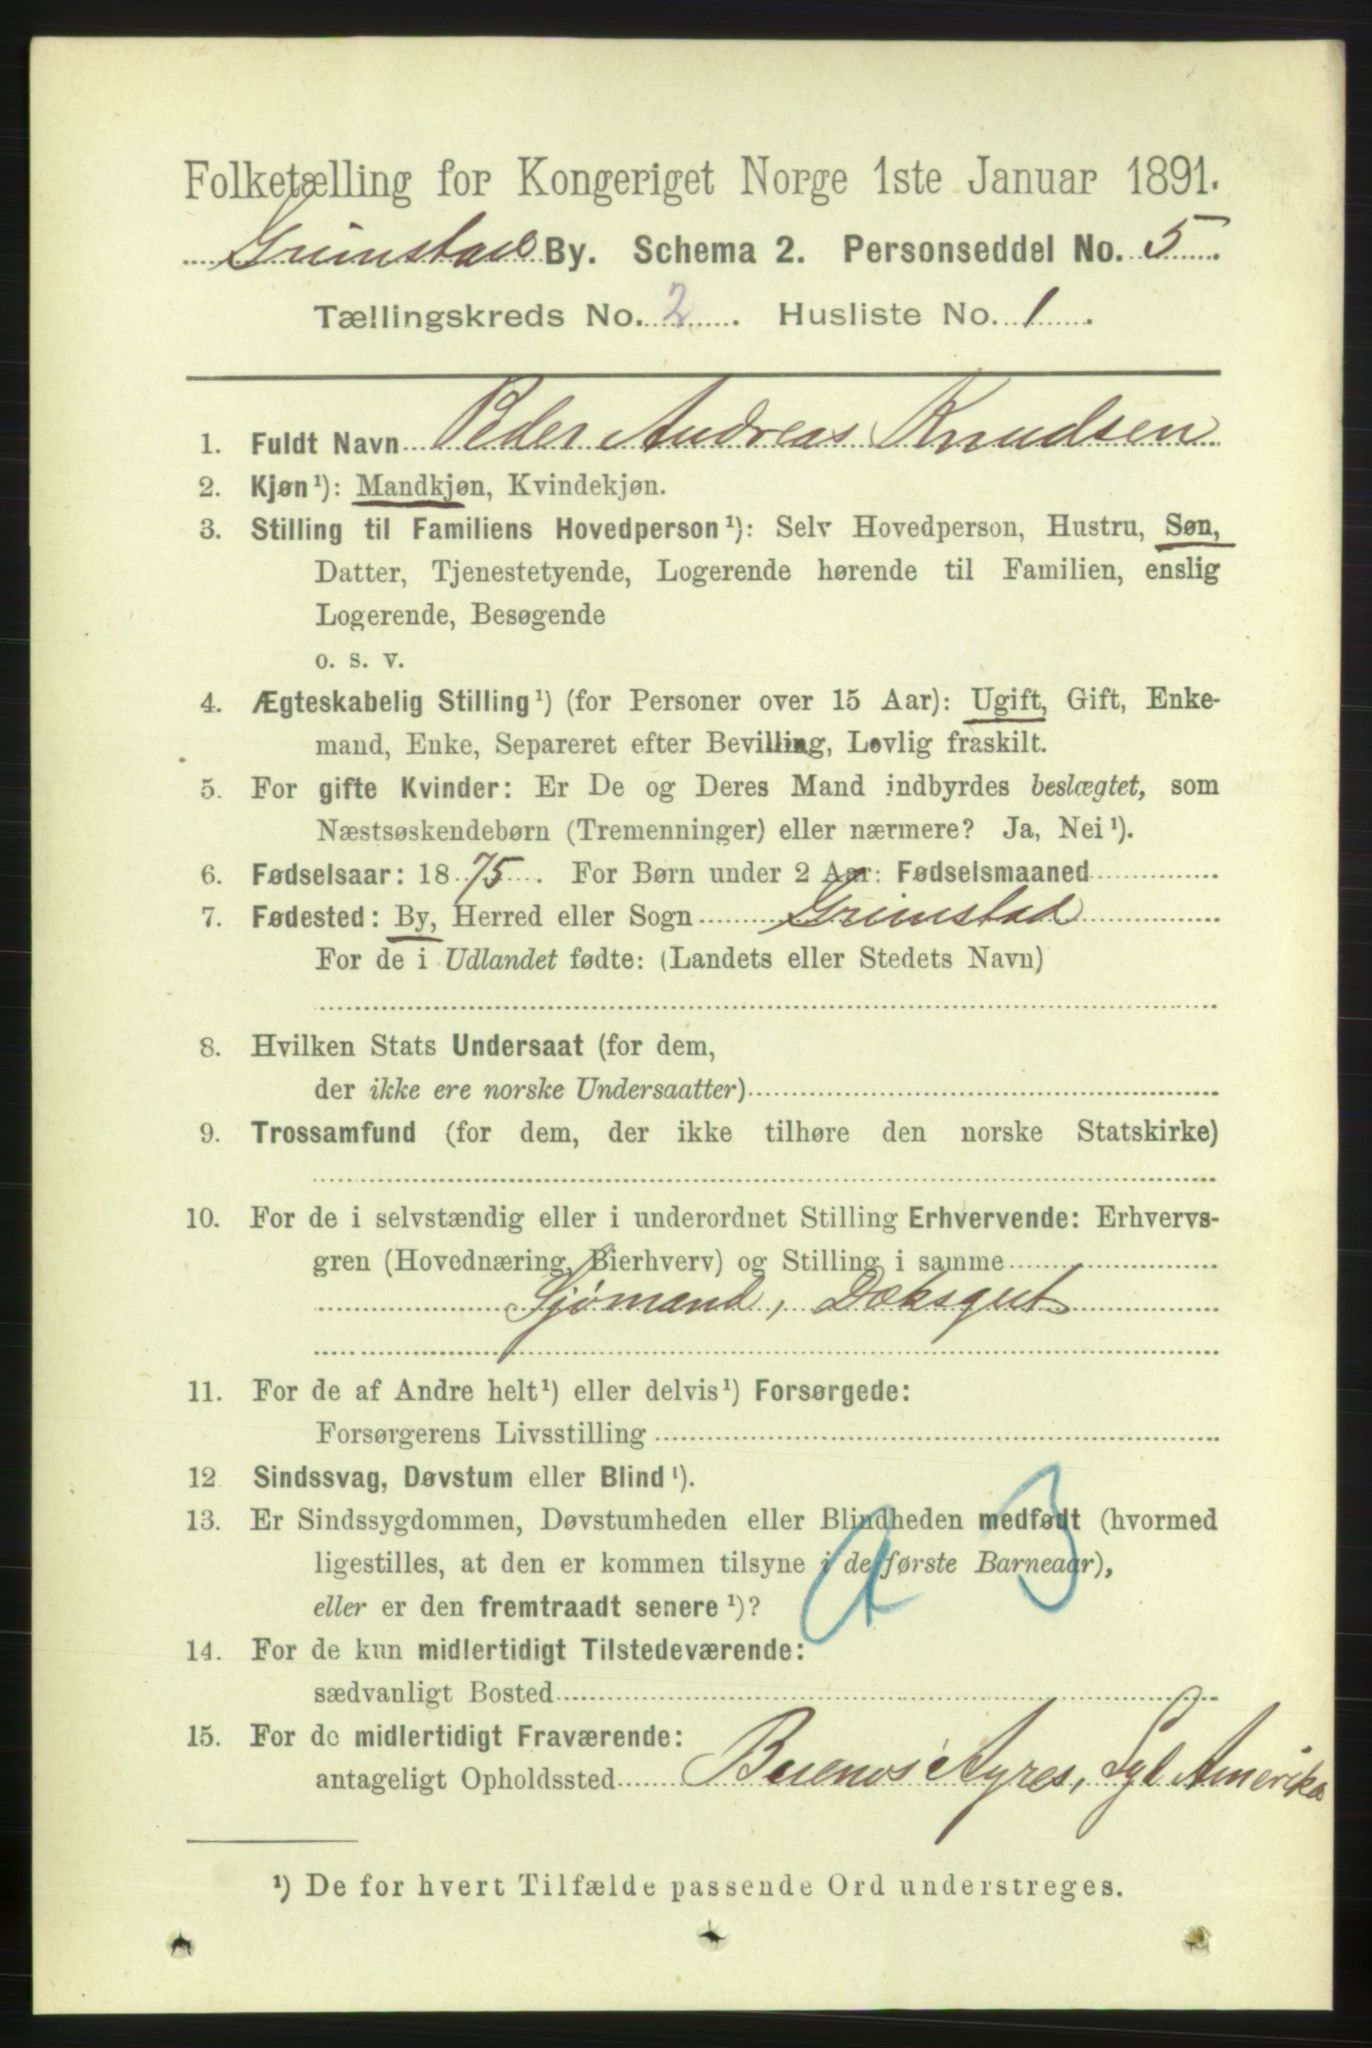 Folketælling for Kongeriget Norge 1ste Januar 1891.
Grimstad By. Schema 2. Personseddel No. 5
Tællingskreds No. 2. Husliste No. 1.
1. Fuldt Navn Peder Andreas Knudsen
2. Kjøn¹): Mandkjøn, Kvindekjøn.
3. Stilling til Familiens Hovedperson¹): Selv Hovedperson, Hustru, Søn,
Datter, Tjenestetyende, Logerende hørende til Familien, enslig
Logerende, Besøgende
o. s. v.
4. Ægteskabelig Stilling¹) (for Personer over 15 Aar): Ugift, Gift, Enke-
mand, Enke, Separeret efter Bevilling, Lovlig fraskilt.
5. For gifte Kvinder: Er De og Deres Mand indbyrdes beslægtet, som
Næstsøskendebørn (Tremenninger) eller nærmere? Ja, Nei¹).
6. Fødselsaar: 1875. For Børn under 2 Aar: Fødselsmaaned
7. Fødested: By, Herred eller Sogn Grimstad
For de i Udlandet fødte: (Landets eller Stedets Navn)
8. Hvilken Stats Undersaat (for dem,
der ikke ere norske Undersaatter)
9. Trossamfund (for dem, der ikke tilhøre den norske Statskirke)
10. For de i selvstændig eller i underordnet Stilling Erhvervende: Erhvervs-
gren (Hovednæring, Bierhverv) og Stilling i samme
Sjømand, Dæksgut
11. For de af Andre helt¹) eller delvis¹) Forsørgede:
Forsørgerens Livsstilling
12. Sindssvag, Døvstum eller Blind¹).
13. Er Sindssygdommen, Døvstumheden eller Blindheden medfødt (hvormed
ligestilles, at den er kommen tilsyne i de første Barneaar),
eller er den fremtraadt senere¹)?
14. For de kun midlertidigt Tilstedeværende:
sædvanligt Bosted
15. For de midlertidigt Fraværende:
antageligt Opholdssted Buenos Ayres, Syd Amerika
¹) De for hvert Tilfælde passende Ord understreges.